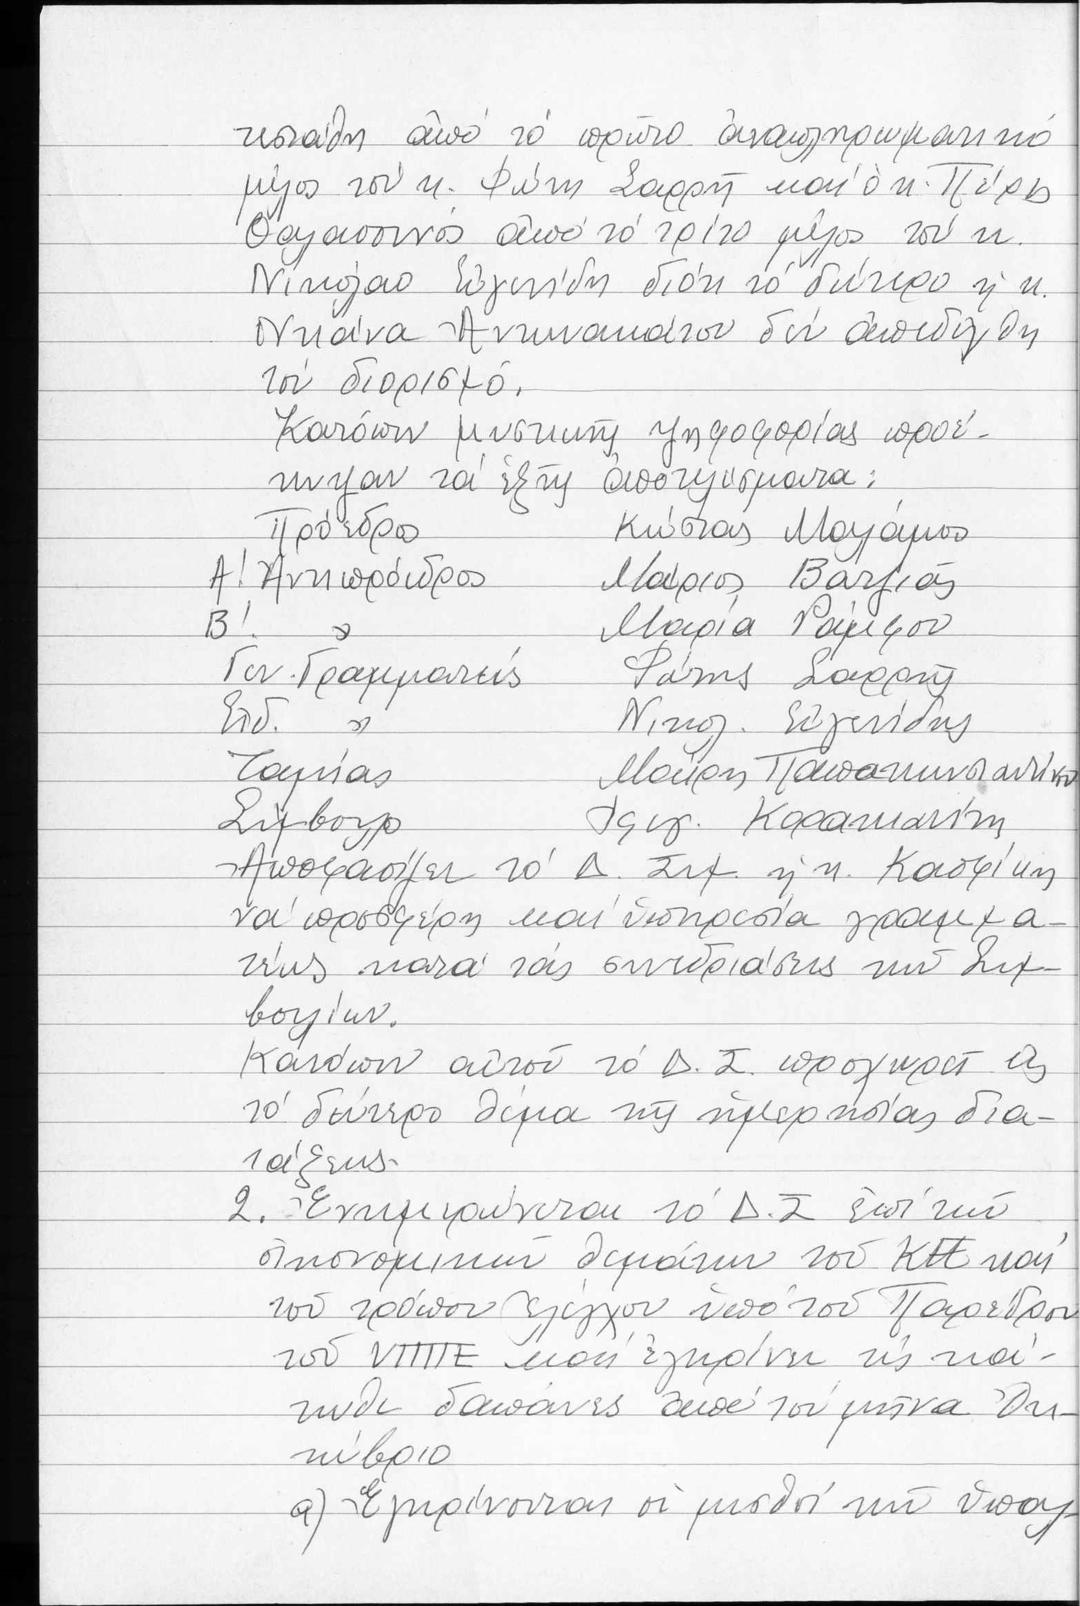 κεστάθη ἀπό τό πρῶτο ἀναπληρωματικό
μέλος τόν κ. Φώτη Σαρρῆ καί ὁ κ. Πέρης
Θαλασσινός ἀπό τό τρίτο μέλος τόν κ.
Νικόλαο Εὐγενίδη διότι τό δεύτερο ἡ κ.
Ντιάνα Ἀντωνακάτου δέν ἀπεδέχθη
τόν διορισμό.
Κατόπιν μυστικῆς ψηφοφορίας προέ-
κυψαν τά ἑξῆς ἀποτελέσματα:
Πρόεδρος Κώστας Μαλάμος
Α! Ἀντιπρόεδρος Μάριος Βατζιᾶς
Β! » Μαρία Ράμφου
Γεν. Γραμματεύς Φώτης Σαρρῆς
Εἰδ. » Νικολ. Εὐγενίδης
Ταμίας Μαίρη Παπακωνσταντίνου
Σύμβουλο Ἰφιγ. Καρακατσάνη
Ἀποφασίζει τό Δ. Συμ. ἡ κ. Κασφίκη
νά προσφέρη καί ὑπηρεσία γραμμα-
τέως κατά τάς συνεδριάσεις τῶν Συμ-
βουλίων.
Κατόπιν αὐτοῦ τό Δ.Σ. προχωρεῖ εἰς
τό δεύτερο θέμα τῆς ἡμερησίας δια-
τάξεως.
2. Ἐνημερώνεται τό Δ.Σ ἐπί τῶν
οἰκονομικῶν θεμάτων τοῦ ΚΠ καί
τοῦ τρόπου ἐλέγχου ὑπό τοῦ Παρέδρου
τοῦ ΥΠΠΕ καί ἐγκρίνει τίς κά-
τωθι δαπάνες ἀπό τόν μῆνα Ὀκ-
τώβριο
α) Ἐγκρίνονται οἱ μισθοί τῶν ὑπαλ-